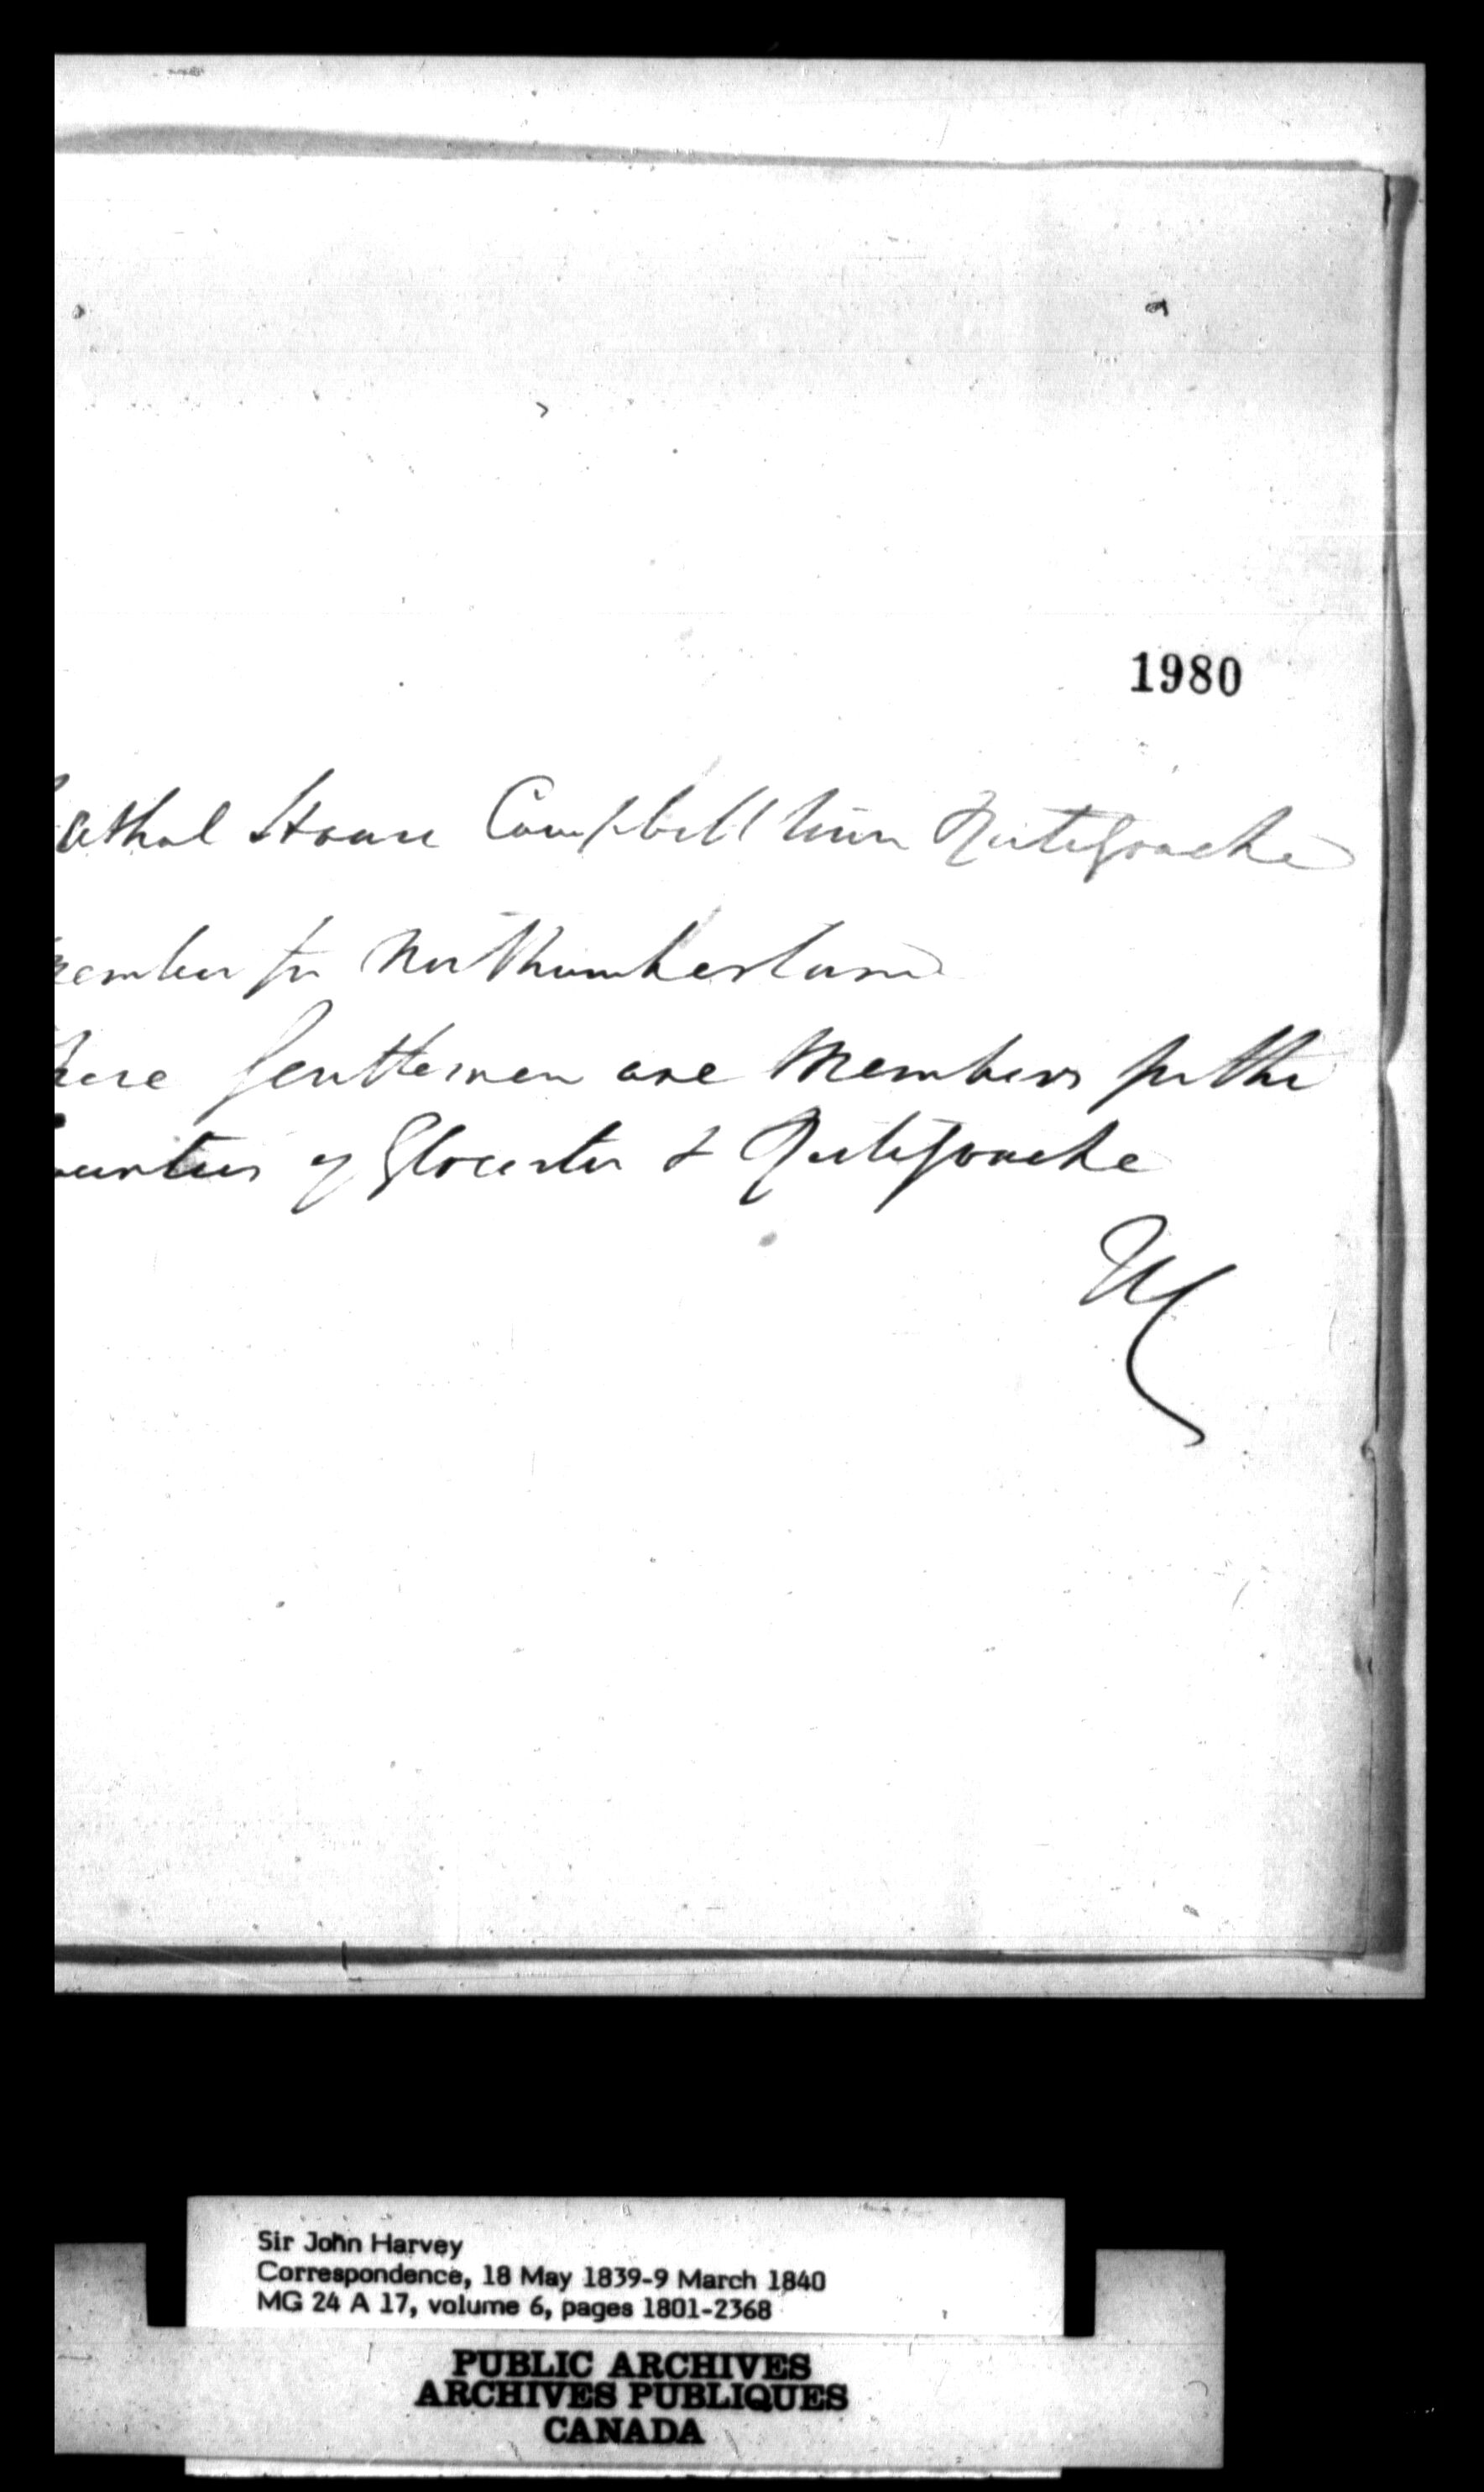 1980
athol House Campbelltown Ristigouche
ember for Northumberland
hese Gentlemen are Members for the
ounties of Glocester & Ristigouche
Sir John Harvey
Correspondence, 18 May 1839-9 March 1840
MG 24 A 17, volume 6, pages 1801-2368
PUBLIC ARCHIVES
ARCHIVES PUBLIQUES
CANADA